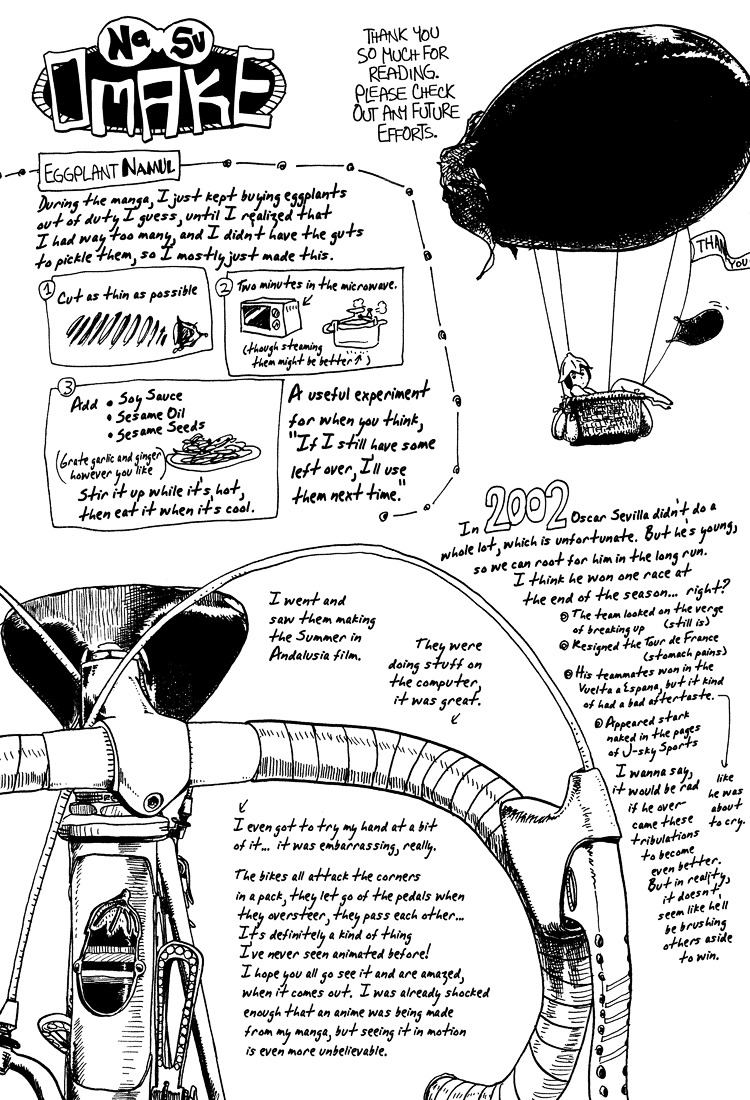 NASU
OMAKE
THANK YOU
SO MUCH FOR
READING.
PLEASE CHECK
OUT ANY FUTURE
EFFORTS.
EGGPLANT NAMUL
During the manga, I just kept buying eggplants
out of duty I guess, until I realized that
I had way too many, and I didn't have the guts
to pickle them, so I mostly just made this.
1 Cut as thin as possible
2 Two minutes in the microwave.
(though steaming
them might be better↑)
3
Add • Soy Sauce
• Sesame Oil
• Sesame Seeds
(Grate garlic and ginger
however you like)
Stir it up while it's hot,
then eat it when it's cool.
A useful experiment
for when you think,
"If I still have some
left over, I'll use
them next time."
THANK
YOU
In 2002 Oscar Sevilla didn't do a
whole lot, which is unfortunate. But he's young,
so we can root for him in the long run.
I think he won one race at
the end of the season... right?
The team looked on the verge
of breaking up (still is)
Resigned the Tour de France
(stomach pains)
His teammates won in the
Vuelta a Espana, but it kind
of had a bad aftertaste.
Appeared stark
naked in the pages
of J-sky Sports
like
he was
about
to cry.
I wanna say,
it would be rad
if he over-
came these
tribulations
to become
even better.
But in reality,
it doesn't
seem like he'll
be brushing
others aside
to win.
I went and
saw them making
the Summer in
Andalusia film.
They were
doing stuff on
the computer,
it was great.
I even got to try my hand at a bit
of it... it was embarrassing, really.
The bikes all attack the corners
in a pack, they let go of the pedals when
they oversteer, they pass each other...
It's definitely a kind of thing
I've never seen animated before!
I hope you all go see it and are amazed,
when it comes out. I was already shocked
enough that an anime was being made
from my manga, but seeing it in motion
is even more unbelievable.